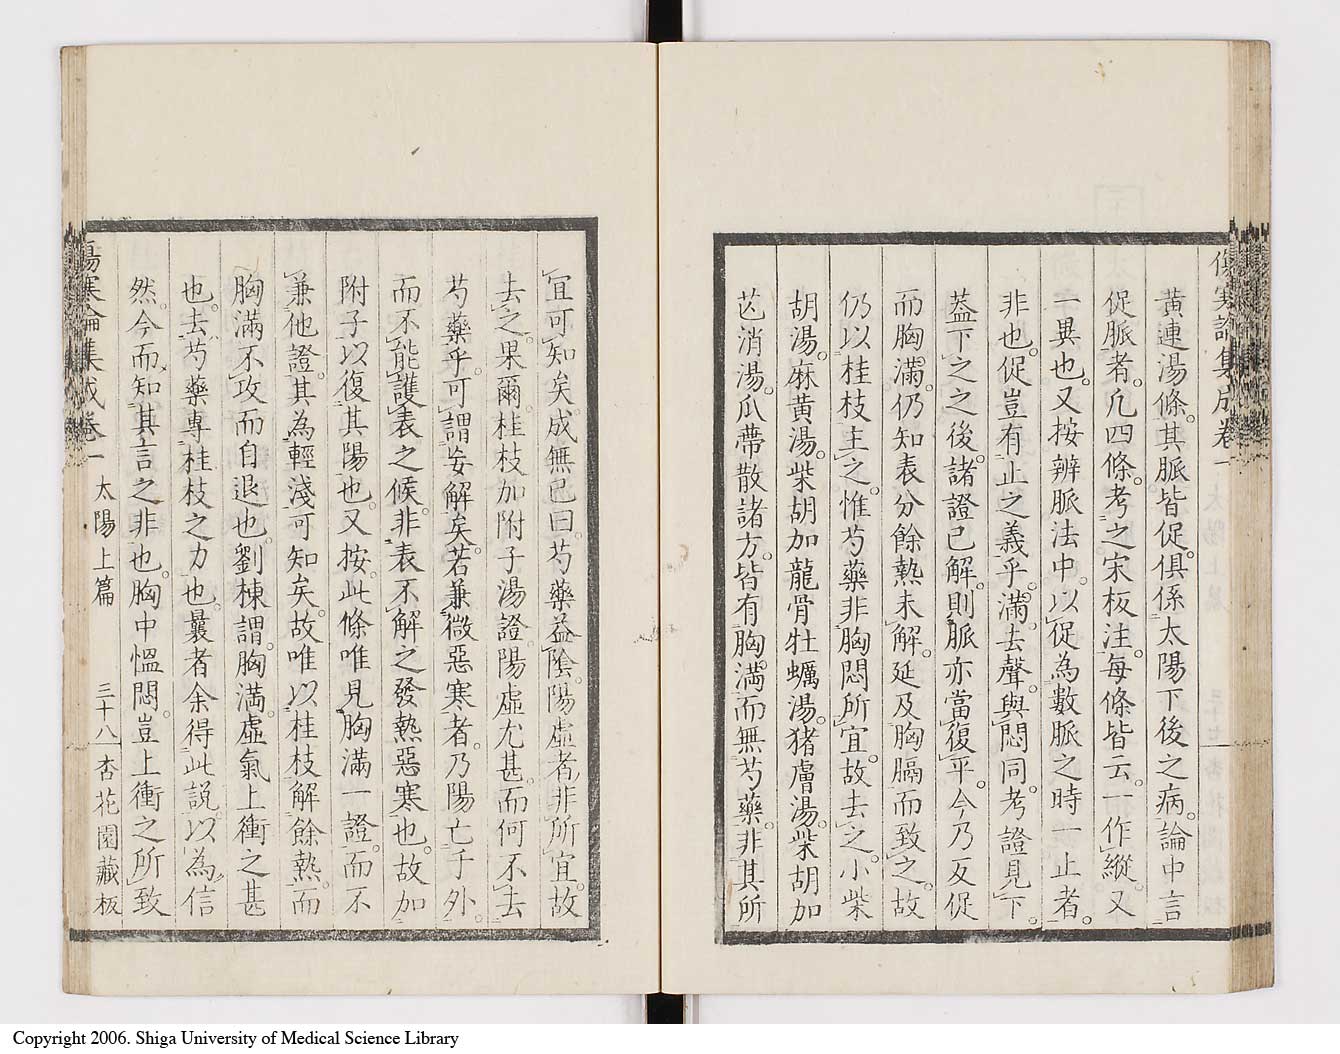 傷寒論集成卷一
黃連湯條其脈皆促俱係太陽下後之病論中言
促脈者凡四條考之宋板注每條皆云一作縱又
一異也又按辨脈法中以促為數脈之時一止者
非也促豈有止之義乎滿去聲與悶同考證見下
蓋下之之後諸證已解則脈亦當復平今乃反促
而胸滿仍知表分餘熱未解延及胸膈而致之故
仍以桂枝主之惟芍藥非胸悶所宜故去之小柴
胡湯麻黃湯柴胡加龍骨牡蠣湯猪膚湯柴胡加
芒消湯瓜蔕散諸方皆有胸滿而無芍藥非其所
宜可知矣成無已曰芍藥益陰陽虛者非所宜故
去之果爾桂枝加附子湯證陽虛尤甚而何不去
芍藥乎可謂妄解矣若兼微惡寒者乃陽亡于外
而不能護表之候非表不解之發熱惡寒也故加
附子以復其陽也又按此條唯見胸滿一證而不
兼他證其為輕淺可知矣故唯以桂枝解餘熱而
胸滿不攻而自退也劉棟謂胸滿虛氣上衝之甚
也去芍藥專桂枝之力也曩者余得此說以為信
然今而知其言之非也胸中慍悶豈上衝之所致
傷寒論集成卷一 太陽上篇 三十八 杏花園藏板
Copyright 2006. Shiga University of Medical Science Library